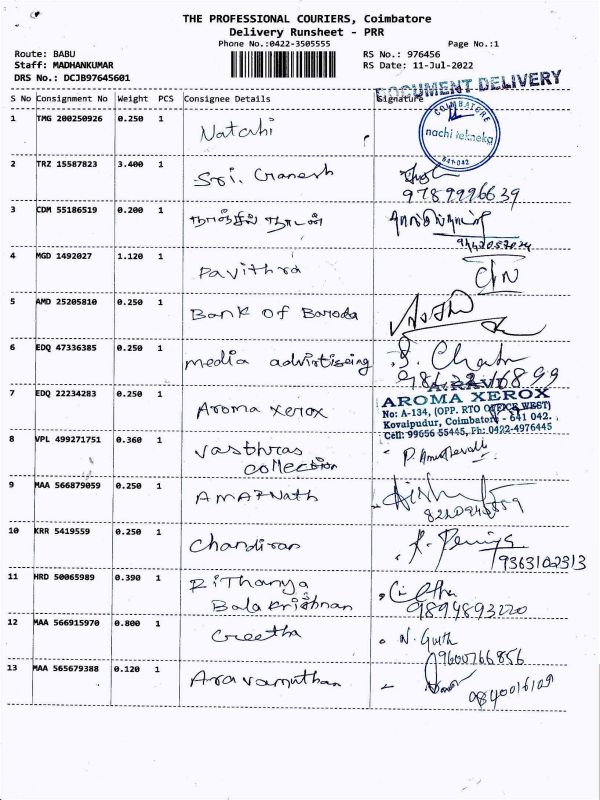 THE PROFESSIONAL COURIERS, Coimbatore
Delivery Runsheet - PRR
Phone No.:0422-3505555
Page No.:1
Route: BABU
RS No.: 976456
Staff: MADHANKUMAR
RS Date: 11-Jul-2022
DRS No.: DCJB97645601
DOCUMENT DELIVERY
S No Consignment No Weight PCS Consignee Details Signature
COIMBATORE
nachi tekneka
641-042
1 TMG 200250926 0.250 1 Natchi
2 TRZ 15587823 3.400 1 Sri. Ganesh
9789996639
3 CDM 55186519 0.200 1
4 MGD 1492027 1.120 1 Pavithra
5 AMD 25205810 0.250 1 Bank of Baroda
6 EDQ 47336385 0.250 1 media advirtiseing
7 EDQ 22234283 0.250 1 Aroma xerox
A. RAVI
AROMA XEROX
No: A-134, (OPP. RTO OFFICE WEST)
Kovaipudur, Coimbatore - 641 042.
Cell: 99656 55445, Ph: 0422-4976445
8 VPL 499271751 0.360 1 vasthras
collection
9 MAA 566879059 0.250 1 AMARNATH
10 KRR 5419559 0.250 1 Chandiran
9363102313
11 HRD 50065989 0.390 1 Rithanya
Bala krishnan
9894893220
12 MAA 566915970 0.800 1 Geetha
9600766856
13 MAA 565679388 0.120 1 Aravamuthan
9840016109